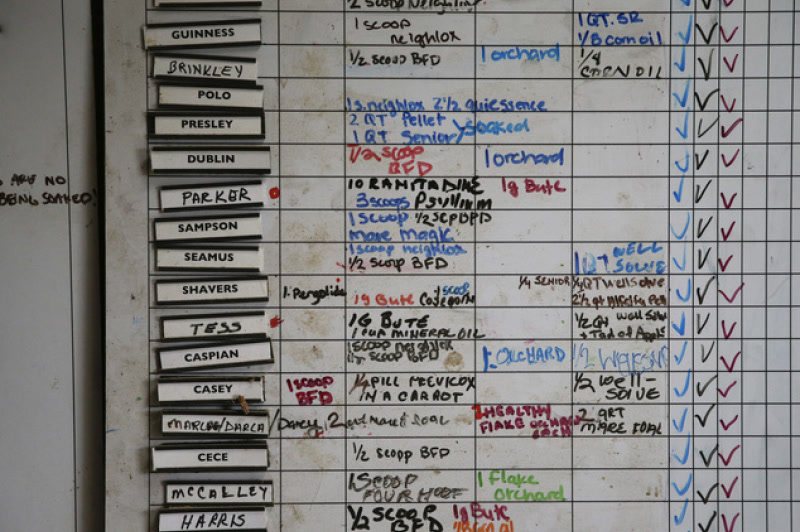 2 Scoop
GUINNESS
1 scoop
neighlox
1 QT. SR
1/8 corn oil
BRINKLEY
1/2 scoop BFD
1 orchard
1/4
CORN OIL
POLO
1 s. neighlox 2 1/2 quiessence
PRESLEY
2 QT Pellet
1 QT Senior
soaked
DUBLIN
1/2 scoop
BFD
1 orchard
ARE NO
BEING SOAKED!
PARKER
10 RANITADINE
3 scoops Psyllium
1g Bute
SAMPSON
1 scoop
mare magic
SEAMUS
1 scoop neighlox
1/2 scoop BFD
1 QT WELL
SOLVE
SHAVERS
1 Pergolide
1g Bute
1 scoop
1/4 SENIOR
1/4 QT Wellsolve
TESS
1G BUTE
1 CUP MINERAL OIL
1/2 Qt well solv
+ Tad of Apple
CASPIAN
1 scoop neighlox
scoop BFD
1 ORCHARD
1/2
CASEY
1 scoop
BFD
1/4 PILL PREVICOX
IN A CARROT
1/2 WELL-
SOLVE
MARCUS/DARCA/Darcy
2
2 HEALTHY
FLAKE ORCHARD
EACH
2 QRT
MARE FOAL
CECE
1/2 scoop BFD
McCALLEY
1 SCOOP
FOUR HOOF
1 Flake
orchard
HARRIS
1/2 SCOOP
BFD
1g Bute